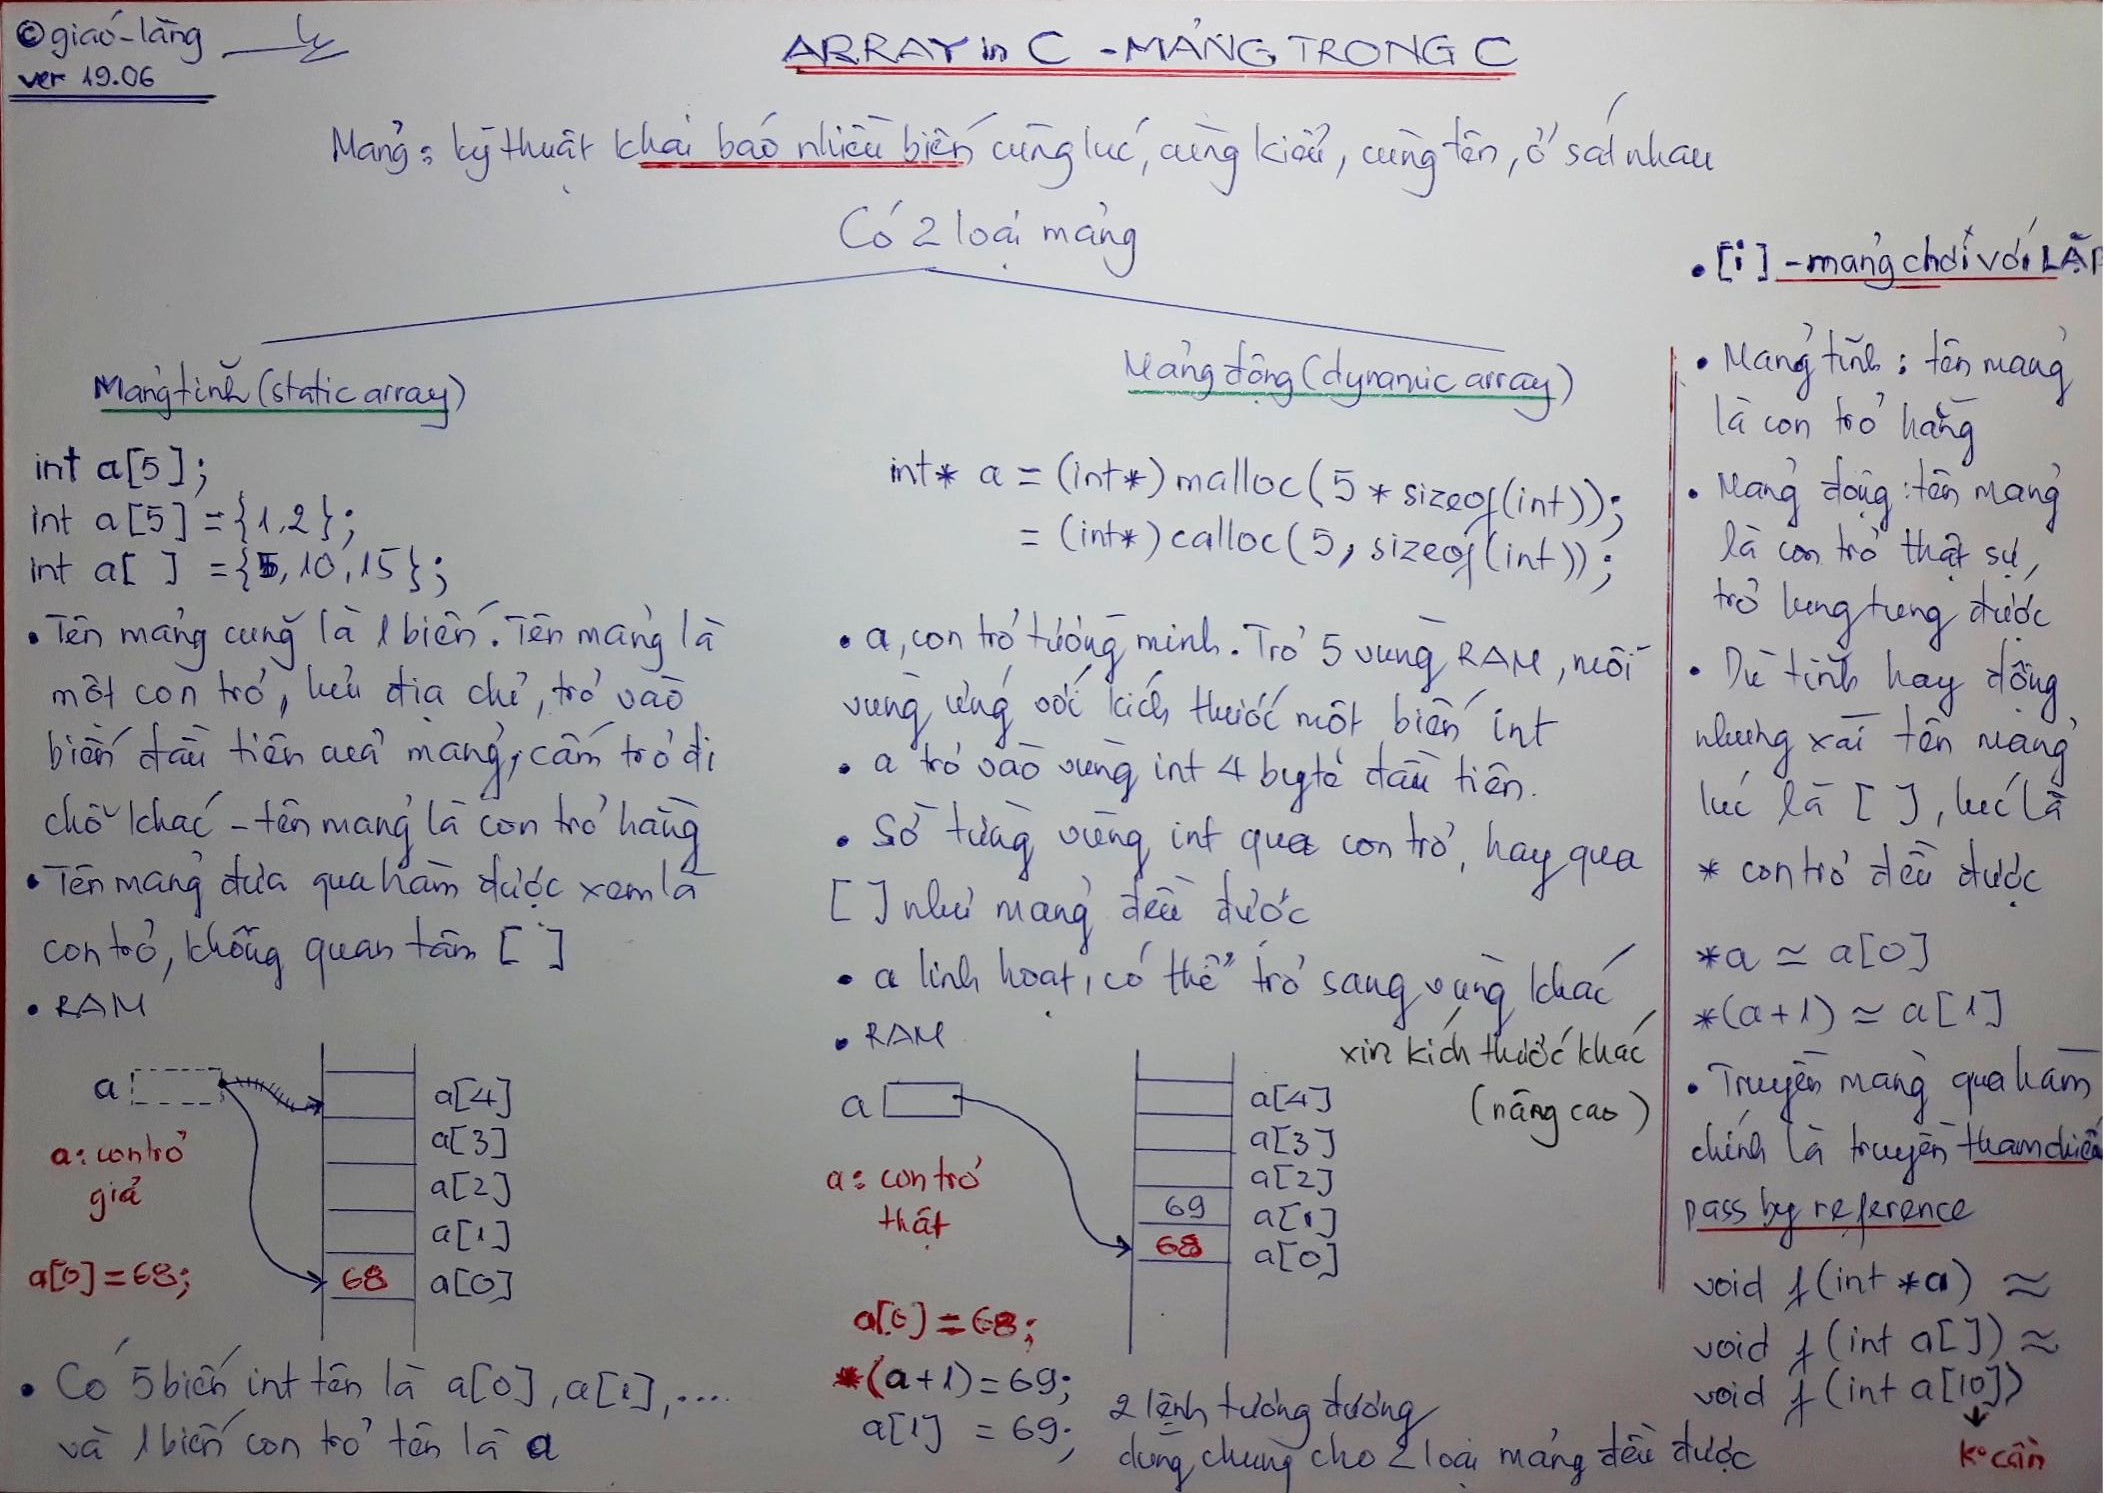 © giáo-làng
ver 19.06
ARRAY in C - MẢNG TRONG C
Mảng: kỹ thuật khai báo nhiều biến cùng lúc, cùng kiểu, cùng tên, ở sát nhau
Có 2 loại mảng
Mảng tĩnh (static array)
int a[5];
int a[5] = {1,2};
int a[ ] = {5, 10, 15};
• Tên mảng cũng là 1 biến. Tên mảng là
một con trỏ, lưu địa chỉ, trỏ vào
biến đầu tiên của mảng, cấm trỏ đi
chỗ khác - tên mảng là con trỏ hằng
• Tên mảng đưa qua hàm được xem là
con trỏ, không quan tâm [ ]
• RAM
a
a: con trỏ
giả
a[0] = 68;
a[4]
a[3]
a[2]
a[1]
68 a[0]
• Có 5 biến int tên là a[0], a[1], ....
và 1 biến con trỏ tên là a
Mảng động (dynamic array)
int* a = (int*) malloc(5 * sizeof(int));
= (int*) calloc(5, sizeof(int));
• a, con trỏ tường minh. Trỏ 5 vùng RAM, mỗi
vùng ứng với kích thước một biến int
• a trỏ vào vùng int 4 byte đầu tiên.
• Sờ từng vùng int qua con trỏ, hay qua
[ ] như mảng đều được
• a linh hoạt, có thể trỏ sang vùng khác
xin kích thước khác
(nâng cao)
• RAM
a
a: con trỏ
thật
a[4]
a[3]
a[2]
69 a[1]
68 a[0]
a[0] = 68;
*(a+1) = 69;
a[1] = 69;
2 lệnh tương đương
dùng chung cho 2 loại mảng đều được
• [i] - mảng chơi với LẶP
• Mảng tĩnh: tên mảng
là con trỏ hằng
• Mảng động: tên mảng
là con trỏ thật sự,
trỏ lung tung được
• Dù tĩnh hay động
nhưng xài tên mảng
lúc là [ ], lúc là
* con trỏ đều được
*a ≃ a[0]
*(a+1) ≃ a[1]
• Truyền mảng qua hàm
chính là truyền tham chiếu
pass by reference
void f(int *a) ≈
void f(int a[]) ≈
void f(int a[10])
k° cần